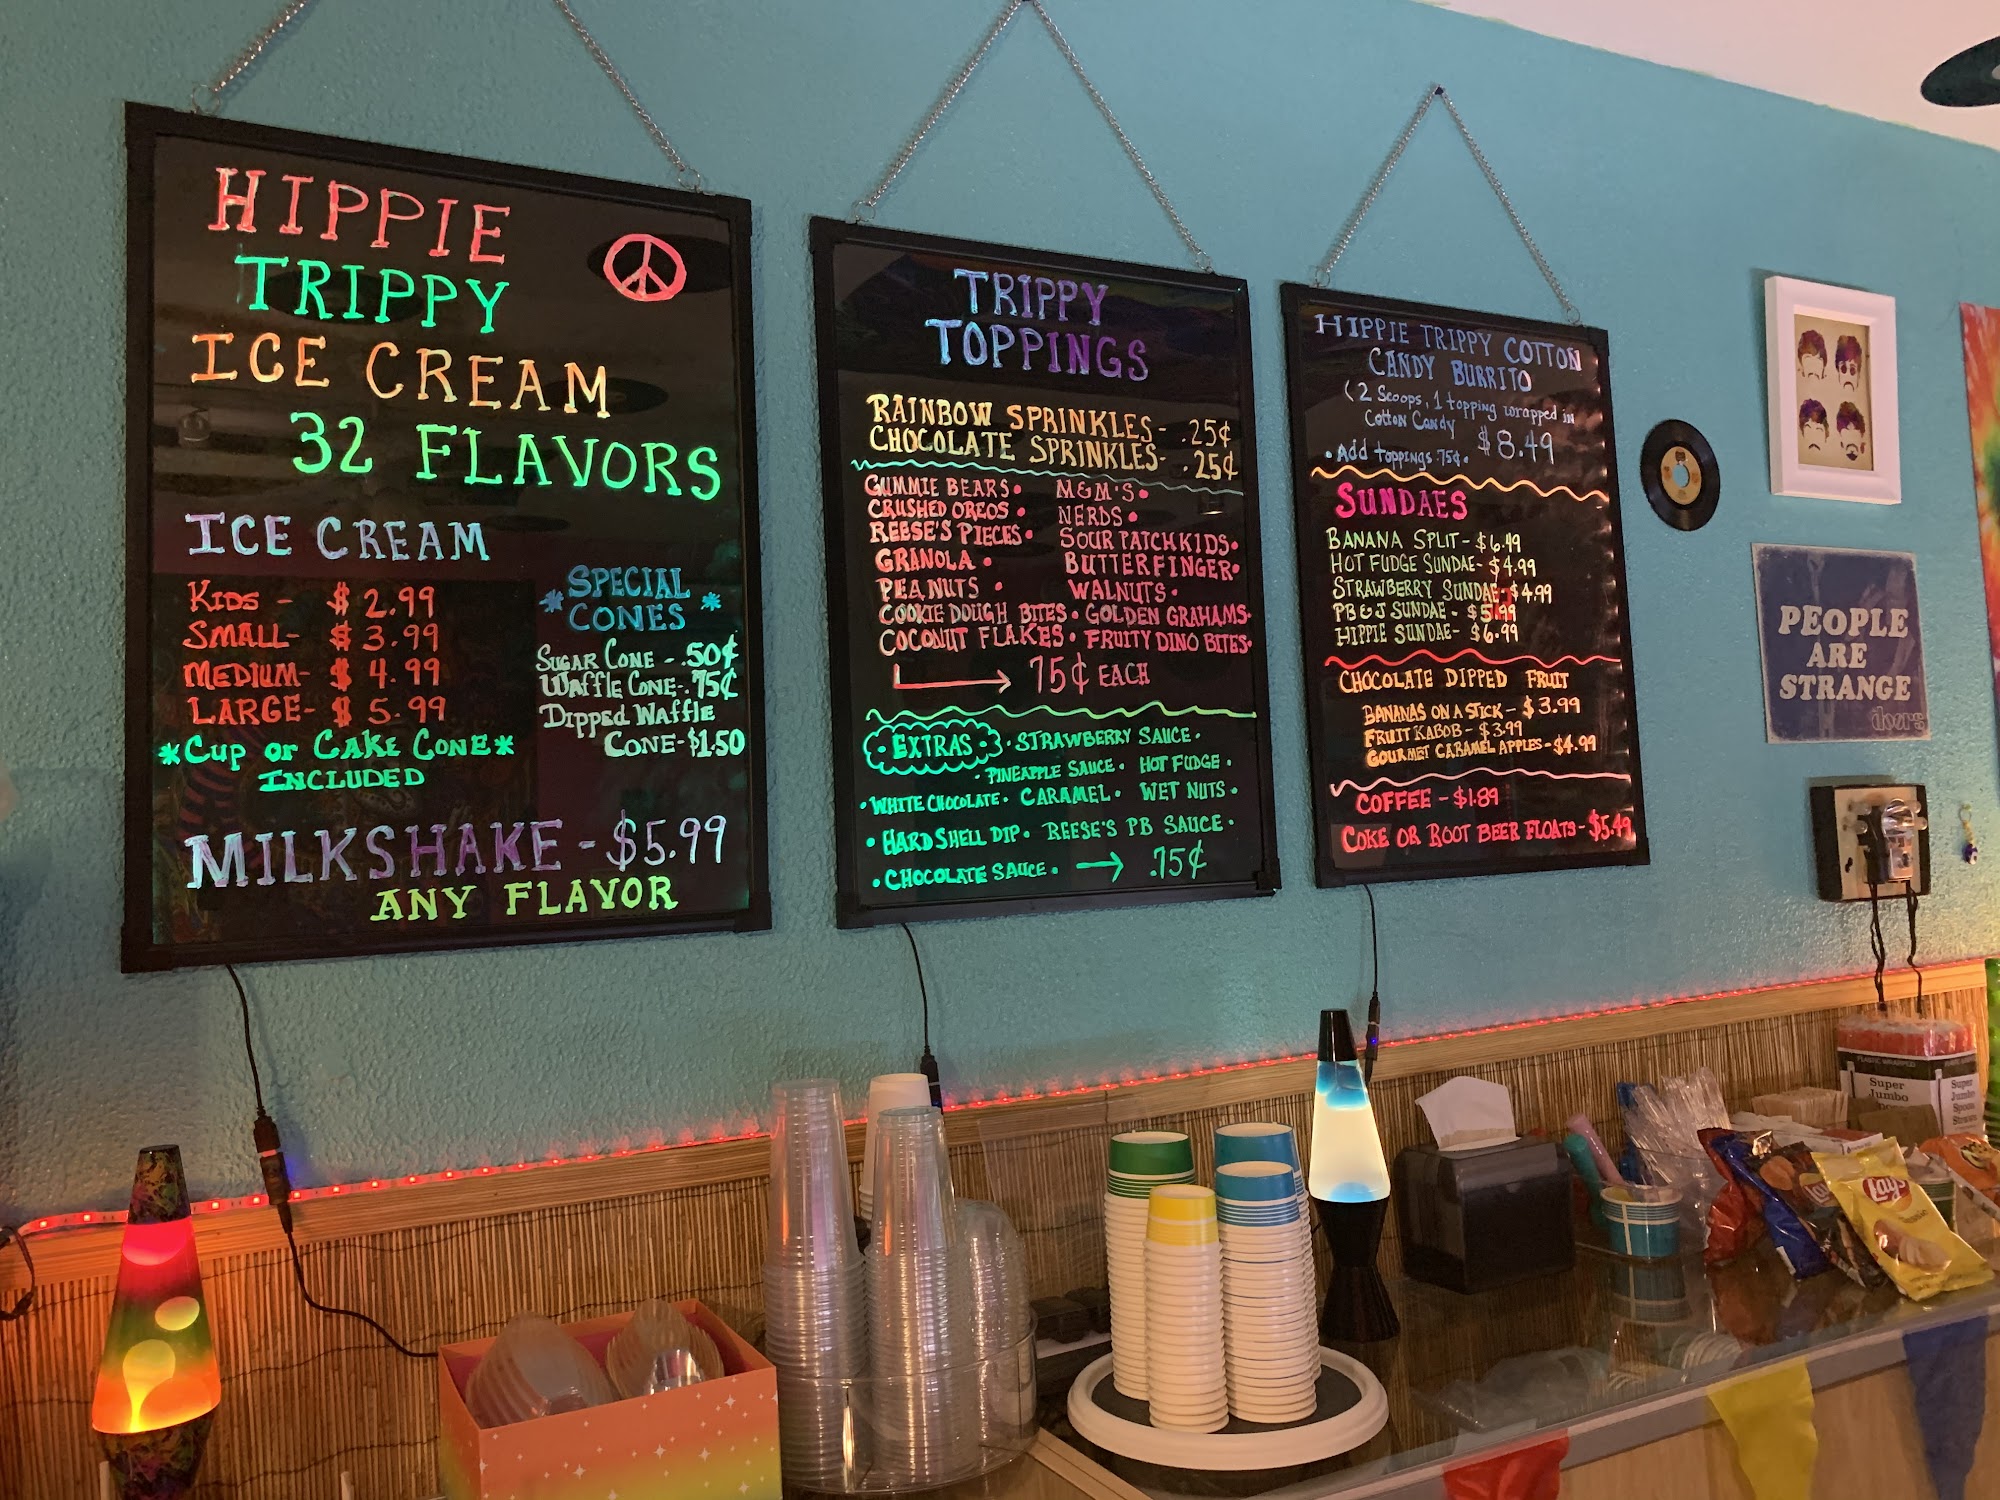 HIPPIE
TRIPPY
ICE CREAM
32 FLAVORS
ICE CREAM
KIDS - $2.99
SMALL- $3.99
MEDIUM- $4.99
LARGE- $5.99
*CUP or CAKE CONE*
INCLUDED
*SPECIAL
CONES*
SUGAR CONE - .50¢
WAFFLE CONE-.75¢
DIPPED WAFFLE
CONE-$1.50
MILKSHAKE - $5.99
ANY FLAVOR
TRIPPY
TOPPINGS
RAINBOW SPRINKLES- .25¢
CHOCOLATE SPRINKLES- .25¢
GUMMIE BEARS• M&M'S•
CRUSHED OREOS • NERDS •
REESE'S PIECES• SOUR PATCH KIDS•
GRANOLA • BUTTERFINGER•
PEANUTS • WALNUTS •
COOKIE DOUGH BITES • GOLDEN GRAHAMS•
COCONUT FLAKES • FRUITY DINO BITES•
→ 75¢ EACH
EXTRAS • STRAWBERRY SAUCE •
• PINEAPPLE SAUCE • HOT FUDGE •
• WHITE CHOCOLATE • CARAMEL • WET NUTS •
• HARD SHELL DIP • REESE'S PB SAUCE •
• CHOCOLATE SAUCE • → .75¢
HIPPIE TRIPPY COTTON
CANDY BURRITO
(2 Scoops, 1 topping wrapped in
Cotton Candy $8.49
• Add toppings .75¢ •
SUNDAES
BANANA SPLIT - $6.49
HOT FUDGE SUNDAE- $4.99
STRAWBERRY SUNDAE- $4.99
PB&J SUNDAE - $5.99
HIPPIE SUNDAE- $6.99
CHOCOLATE DIPPED FRUIT
BANANAS ON A STICK - $3.99
FRUIT KABOB - $3.99
GOURMET CARAMEL APPLES - $4.99
COFFEE - $1.89
COKE OR ROOT BEER FLOATS - $5.49
PEOPLE
ARE
STRANGE
doors
Super
Jumbo
Super
Jumbo
Spoon
Straws
Lay's
Lay's